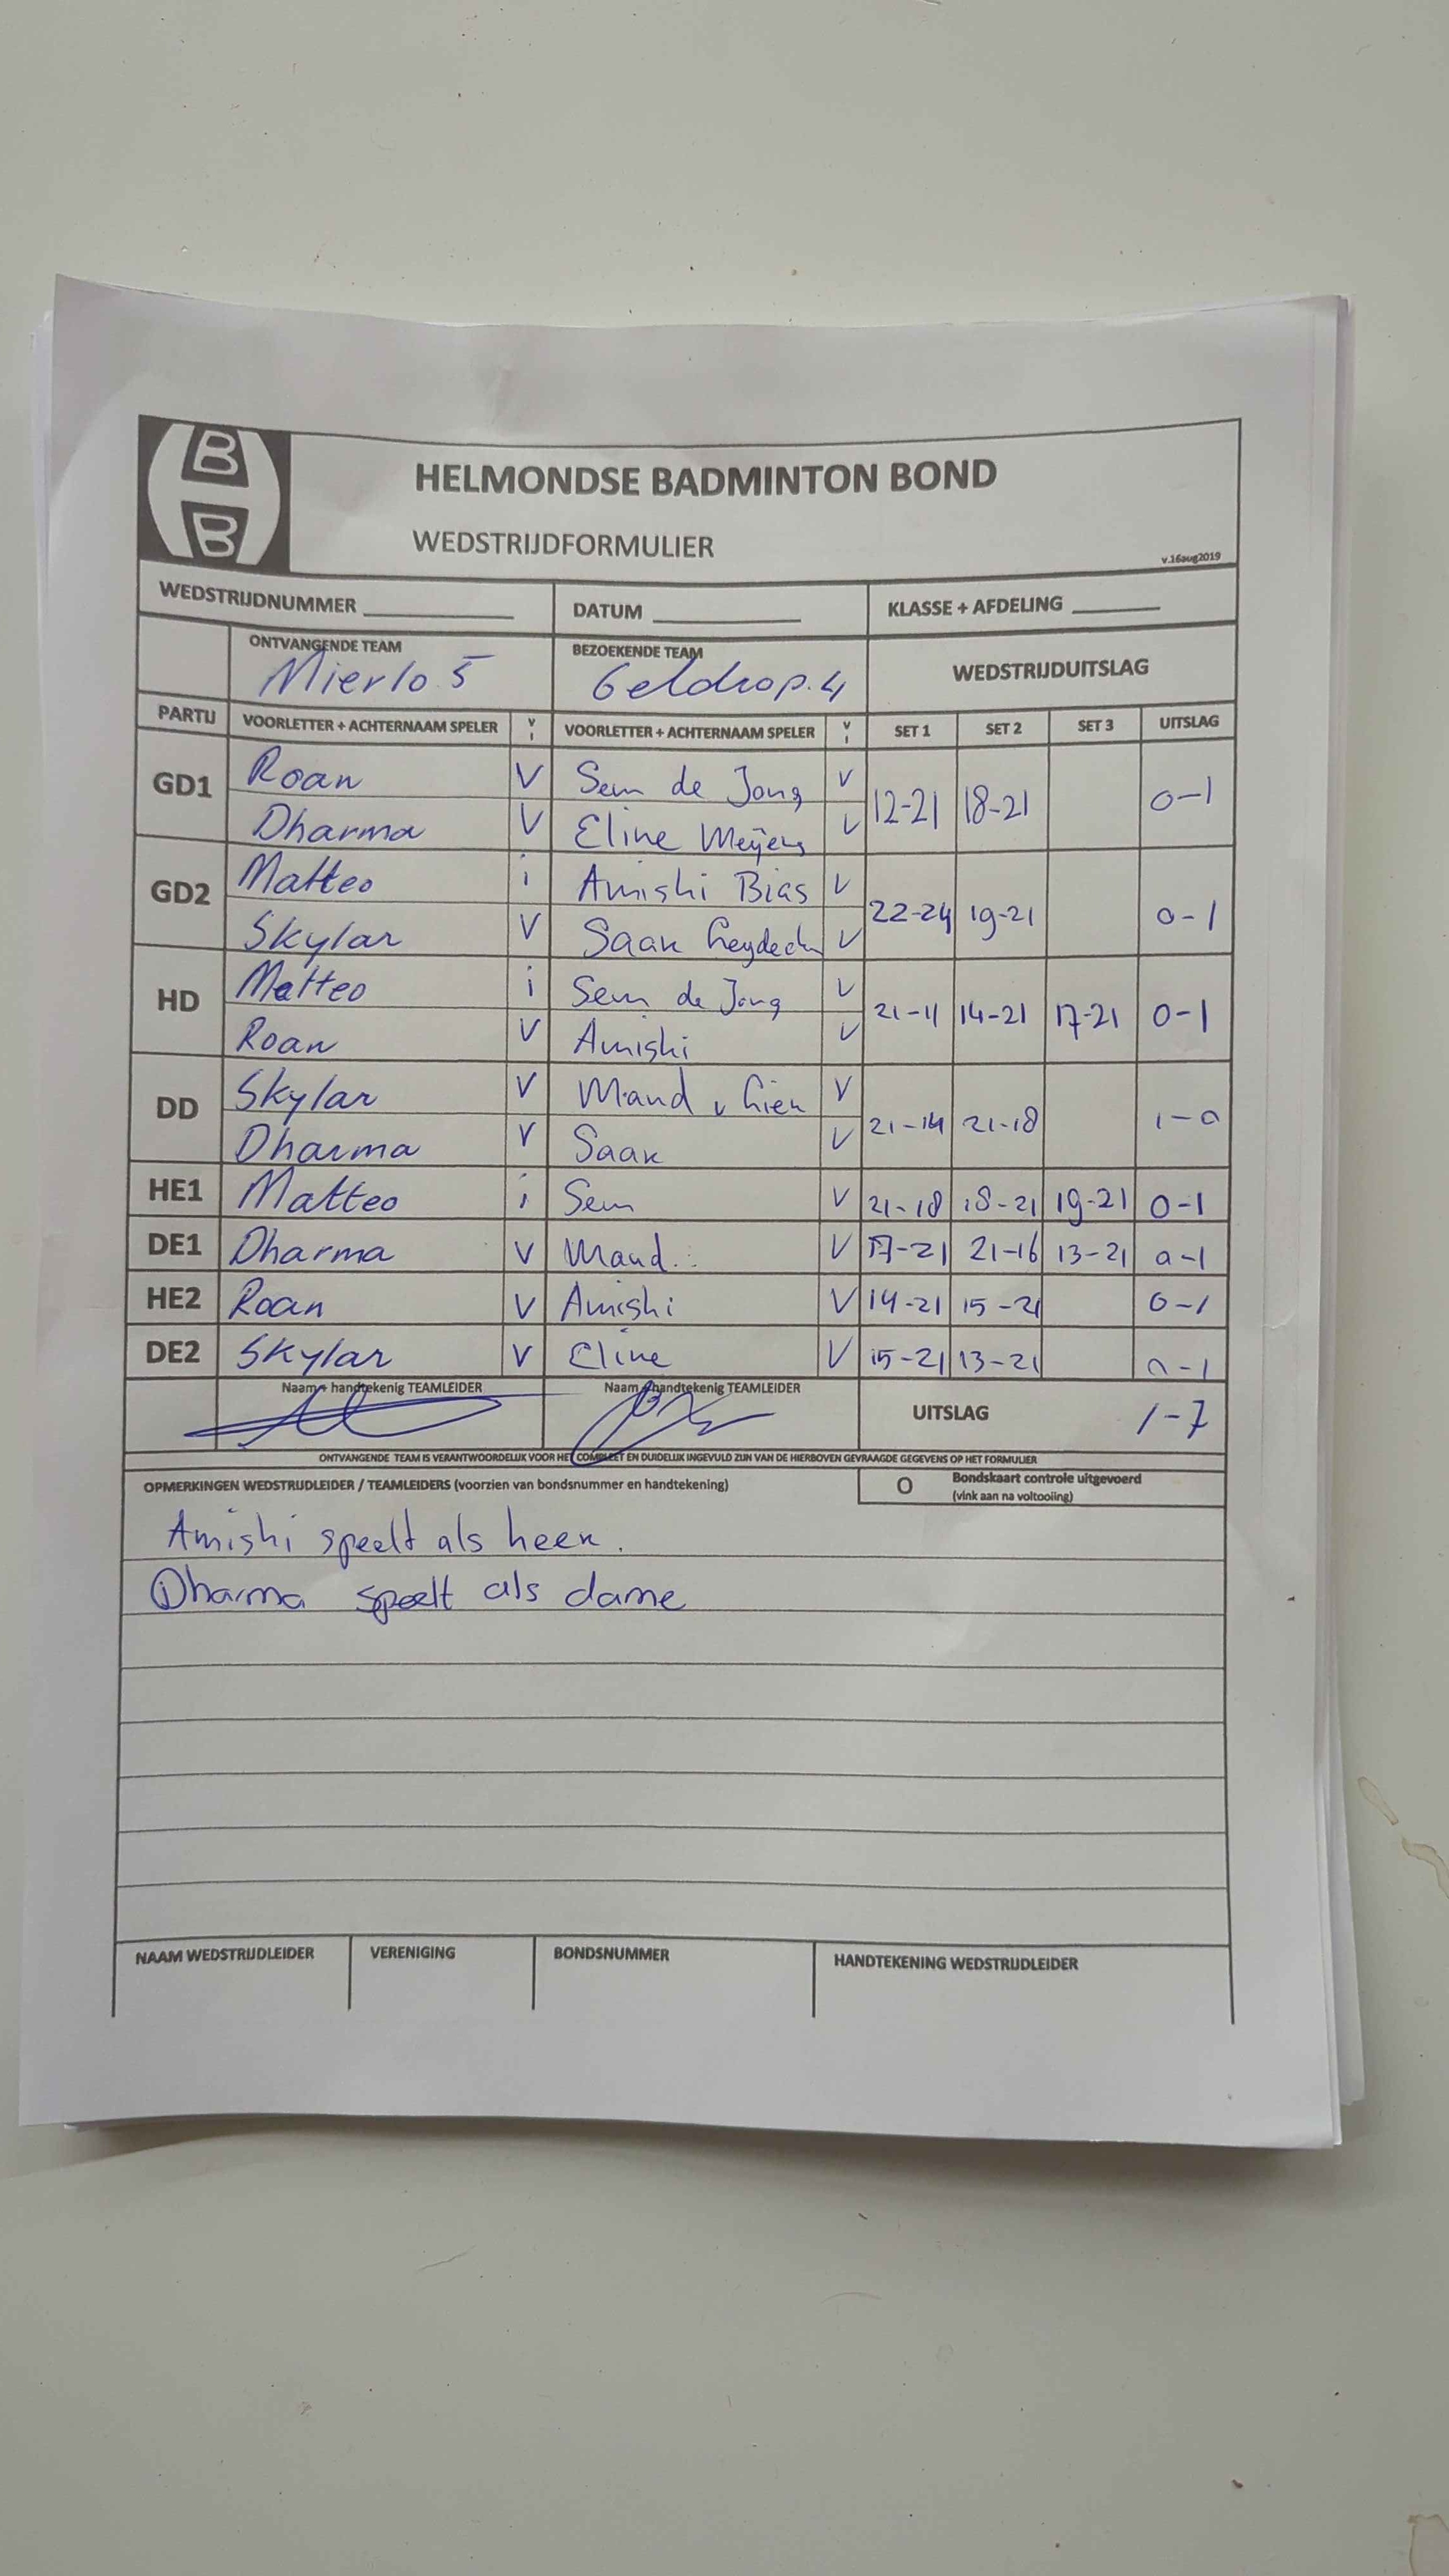 HELMONDSE BADMINTON BOND
WEDSTRIJDFORMULIER
v.16aug2019
WEDSTRIJDNUMMER DATUM KLASSE + AFDELING
ONTVANGENDE TEAM BEZOEKENDE TEAM WEDSTRIJDUITSLAG
Mierlo 5 Geldrop.4
PARTIJ VOORLETTER + ACHTERNAAM SPELER V I VOORLETTER + ACHTERNAAM SPELER V I SET 1 SET 2 SET 3 UITSLAG
GD1 Roan V Sem de Jong V 12-21 18-21 0-1
Dharma V Eline Meijers V
GD2 Matteo i Amishi Bias V 22-24 19-21 0-1
Skylar V Saar V
HD Matteo i Sem de Jong V 21-11 14-21 17-21 0-1
Roan V Amishi V
DD Skylar V Maud v V 21-14 21-18 1-0
Dharma V Saar V
HE1 Matteo i Sem V 21-18 18-21 19-21 0-1
DE1 Dharma V Maud V 17-21 21-16 13-21 0-1
HE2 Roan V Amishi V 14-21 15-21 0-1
DE2 Skylar V Eline V 15-21 13-21 0-1
Naam + handtekenig TEAMLEIDER Naam + handtekenig TEAMLEIDER UITSLAG 1-7
ONTVANGENDE TEAM IS VERANTWOORDELIJK VOOR HET COMPLEET EN DUIDELIJK INGEVULD ZIJN VAN DE HIERBOVEN GEVRAAGDE GEGEVENS OP HET FORMULIER
OPMERKINGEN WEDSTRIJDLEIDER / TEAMLEIDERS (voorzien van bondsnummer en handtekening) O Bondskaart controle uitgevoerd
(vink aan na voltooiing)
Amishi speelt als heer.
Dharma speelt als dame
NAAM WEDSTRIJDLEIDER VERENIGING BONDSNUMMER HANDTEKENING WEDSTRIJDLEIDER